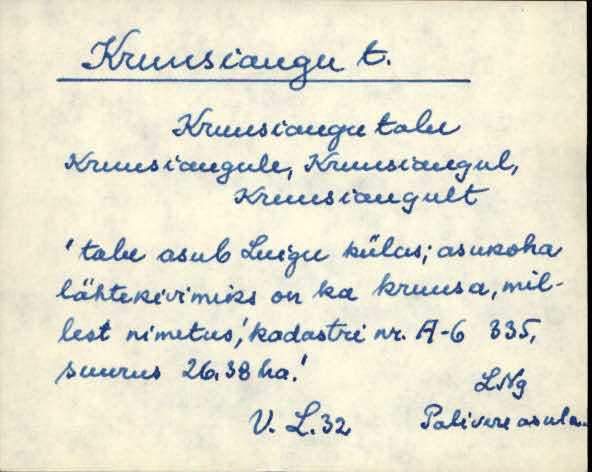 Kruusiaugu t.
Kruusiaugu talu
Kruusiaugule, Kruusiaugul,
Kruusiaugult
'talu asub Luigu külas; asukoha
lähtekivimiks on ka kruusa, mil-
lest nimetus,' kadastri nr. A-6 335,
suurus 26,38 ha.'
LNg
V. L.32 Palivere asula.